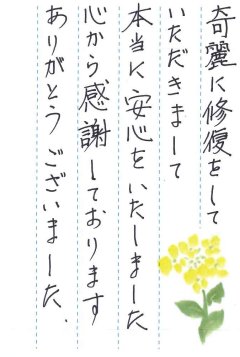 奇麗に修復をして
いただきまして
本当に安心をいたしました
心から感謝しております
ありがとうございました.